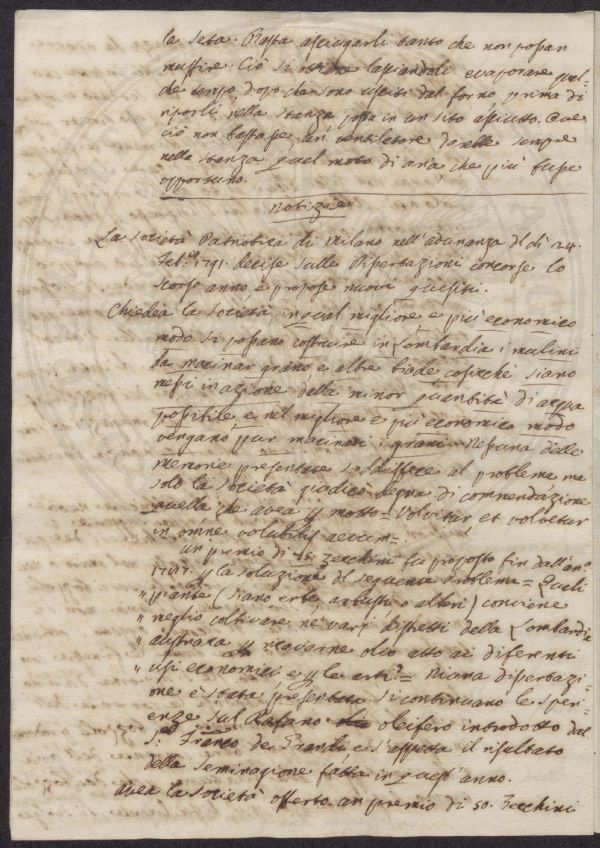 la seta. Basta asciugarli tanto che non possan
muffire. Ciò si ottiene lassiandoli evaporare qual=
che tempo dopo che sono usciti dal forno prima di
riporli nella stanza posta in un sito asciutto. Ove
ciò non bastasse, un ventilatore darebbe sempre
nella stanza quel moto di aria, che più fusse
opportuno.
Notizie
La Società Patriotica di Milano nell'adunanza dl dì 24.
Feb.º 1791. decise sulle Dissertazioni concorse lo
scorso anno e propose nuovi quesiti.
Chiedea la Società in qual migliore e più economico
modo si possano costruire in Lombardia i mulini
da macinar grano, e altre biade cosicchè siano
messi in azione dalla minor quantità di acqua
possibile, e nel migliore e più economico modo
vengano pur macinati i grani. Nessuna delle
memorie presentate soddisfece al problema ma
solo la Società giudicò degna di commendazione
quella che avea p motto = Volvitur et volvetur
in omne volubilis aevum =
Un premio di zecchini fu proposto fin dall'an.º
p la soluzione dl seguente Problema = Quali
" piante (siano erbe arbusti o altri) conviene
" meglio coltivare ne' varj distretti della Lombardia
" austriaca p ricavarne olio atto ai differenti
" usi economici e p le arti = Niuna dissertazi=
one è stata presentata. Si continuano le speri=
enze sul Rafano oleifero introdotto dal
S.r Franco de Grandi e s'aspetta il risultato
della seminazione fatta in quest'anno.
Avea la Società offerto un premio di 50. Zecchini